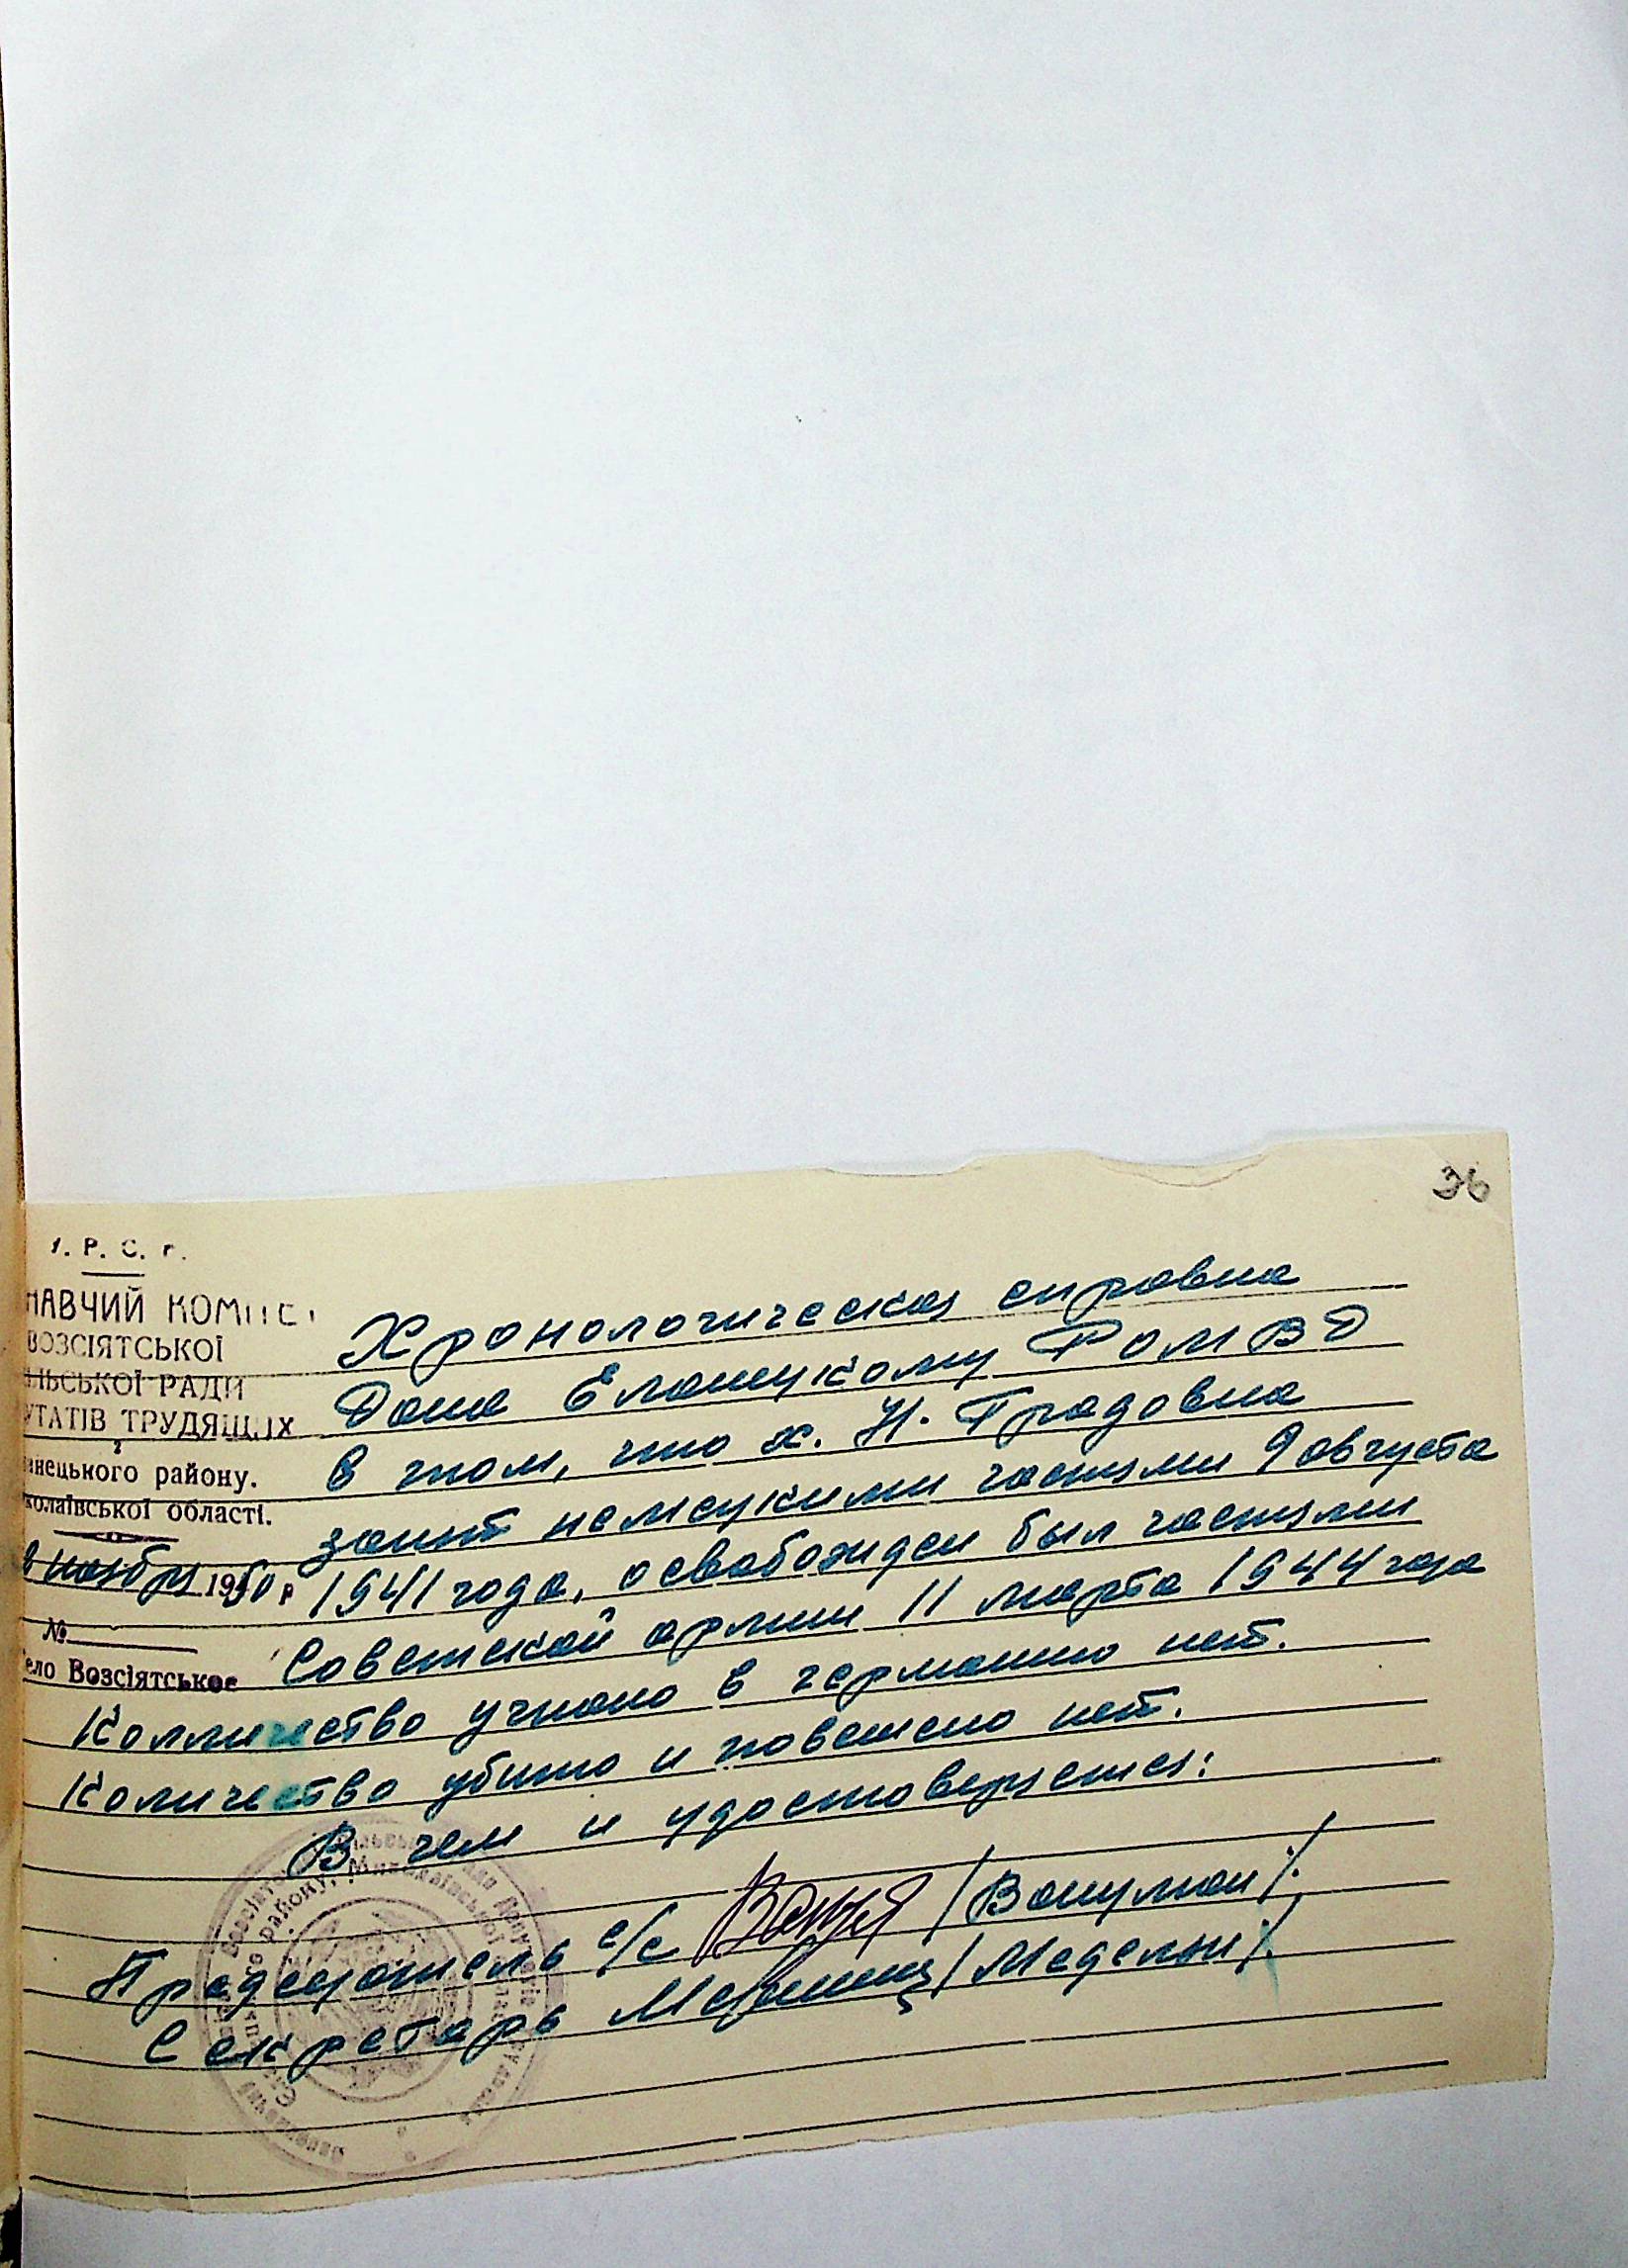 36
Р. С. Р.
НАВЧИЙ КОМІТЕТ
ВОЗСІЯТСЬКОЇ
ІЛЬСЬКОЇ РАДИ
УТАТІВ ТРУДЯЩИХ
анецького району.
колаївської області.
ноября 1950 р
№
ело Возсіятське
Хронологическая справка
Дана Еланецкому РОМВД
в том, что х. Н. Градовка
занят немецкими частями 9 августа
1941 года, освобожден был частями
Советской армии 11 марта 1944 года
Колличество угнано в германию нет.
Количество убито и повешено нет.
В чем и удостоверяется:
Председатель с/с /Вацуман/.
Секретарь /Медельян/.